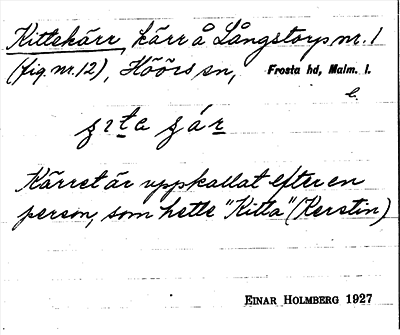 Kittekärr, kärr å Långstorp nr. 1
(fig. nr. 12), Höörs sn, Frosta hd, Malm. l.
Kärret är uppkallat efter en
person, som hette "Kitta" (Kerstin)
EINAR HOLMBERG 1927